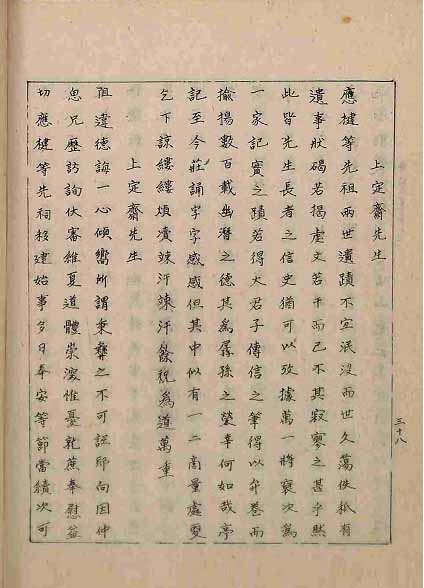 上定齋先生
應楗等先祖兩世遺蹟不宜泯沒而世久蕩佚秪有
遺事狀碣若揭虛文若干而已不其寂寥之甚乎然
此皆先生長者之信史猶可以攷據萬一將裒次爲
一家記實之蹟若得大君子傳信之筆得以弁卷而
揄揚數百載幽潛之德其爲孱孫之榮幸何如哉亭
記至今莊誦字字感感但其中似有一二商量處更
乞下諒縷縷煩凟竦汗竦汗餘祝爲道萬重
上定齋先生
阻違德誨一心傾嚮所謂秉彜之不可誣耶向因仲
思兄歷訪詢伏審維夏道體崇瀅惟憂乾蔗奉慰益
切應楗等先祠移建始事多日奉安等節當續次可
三十八